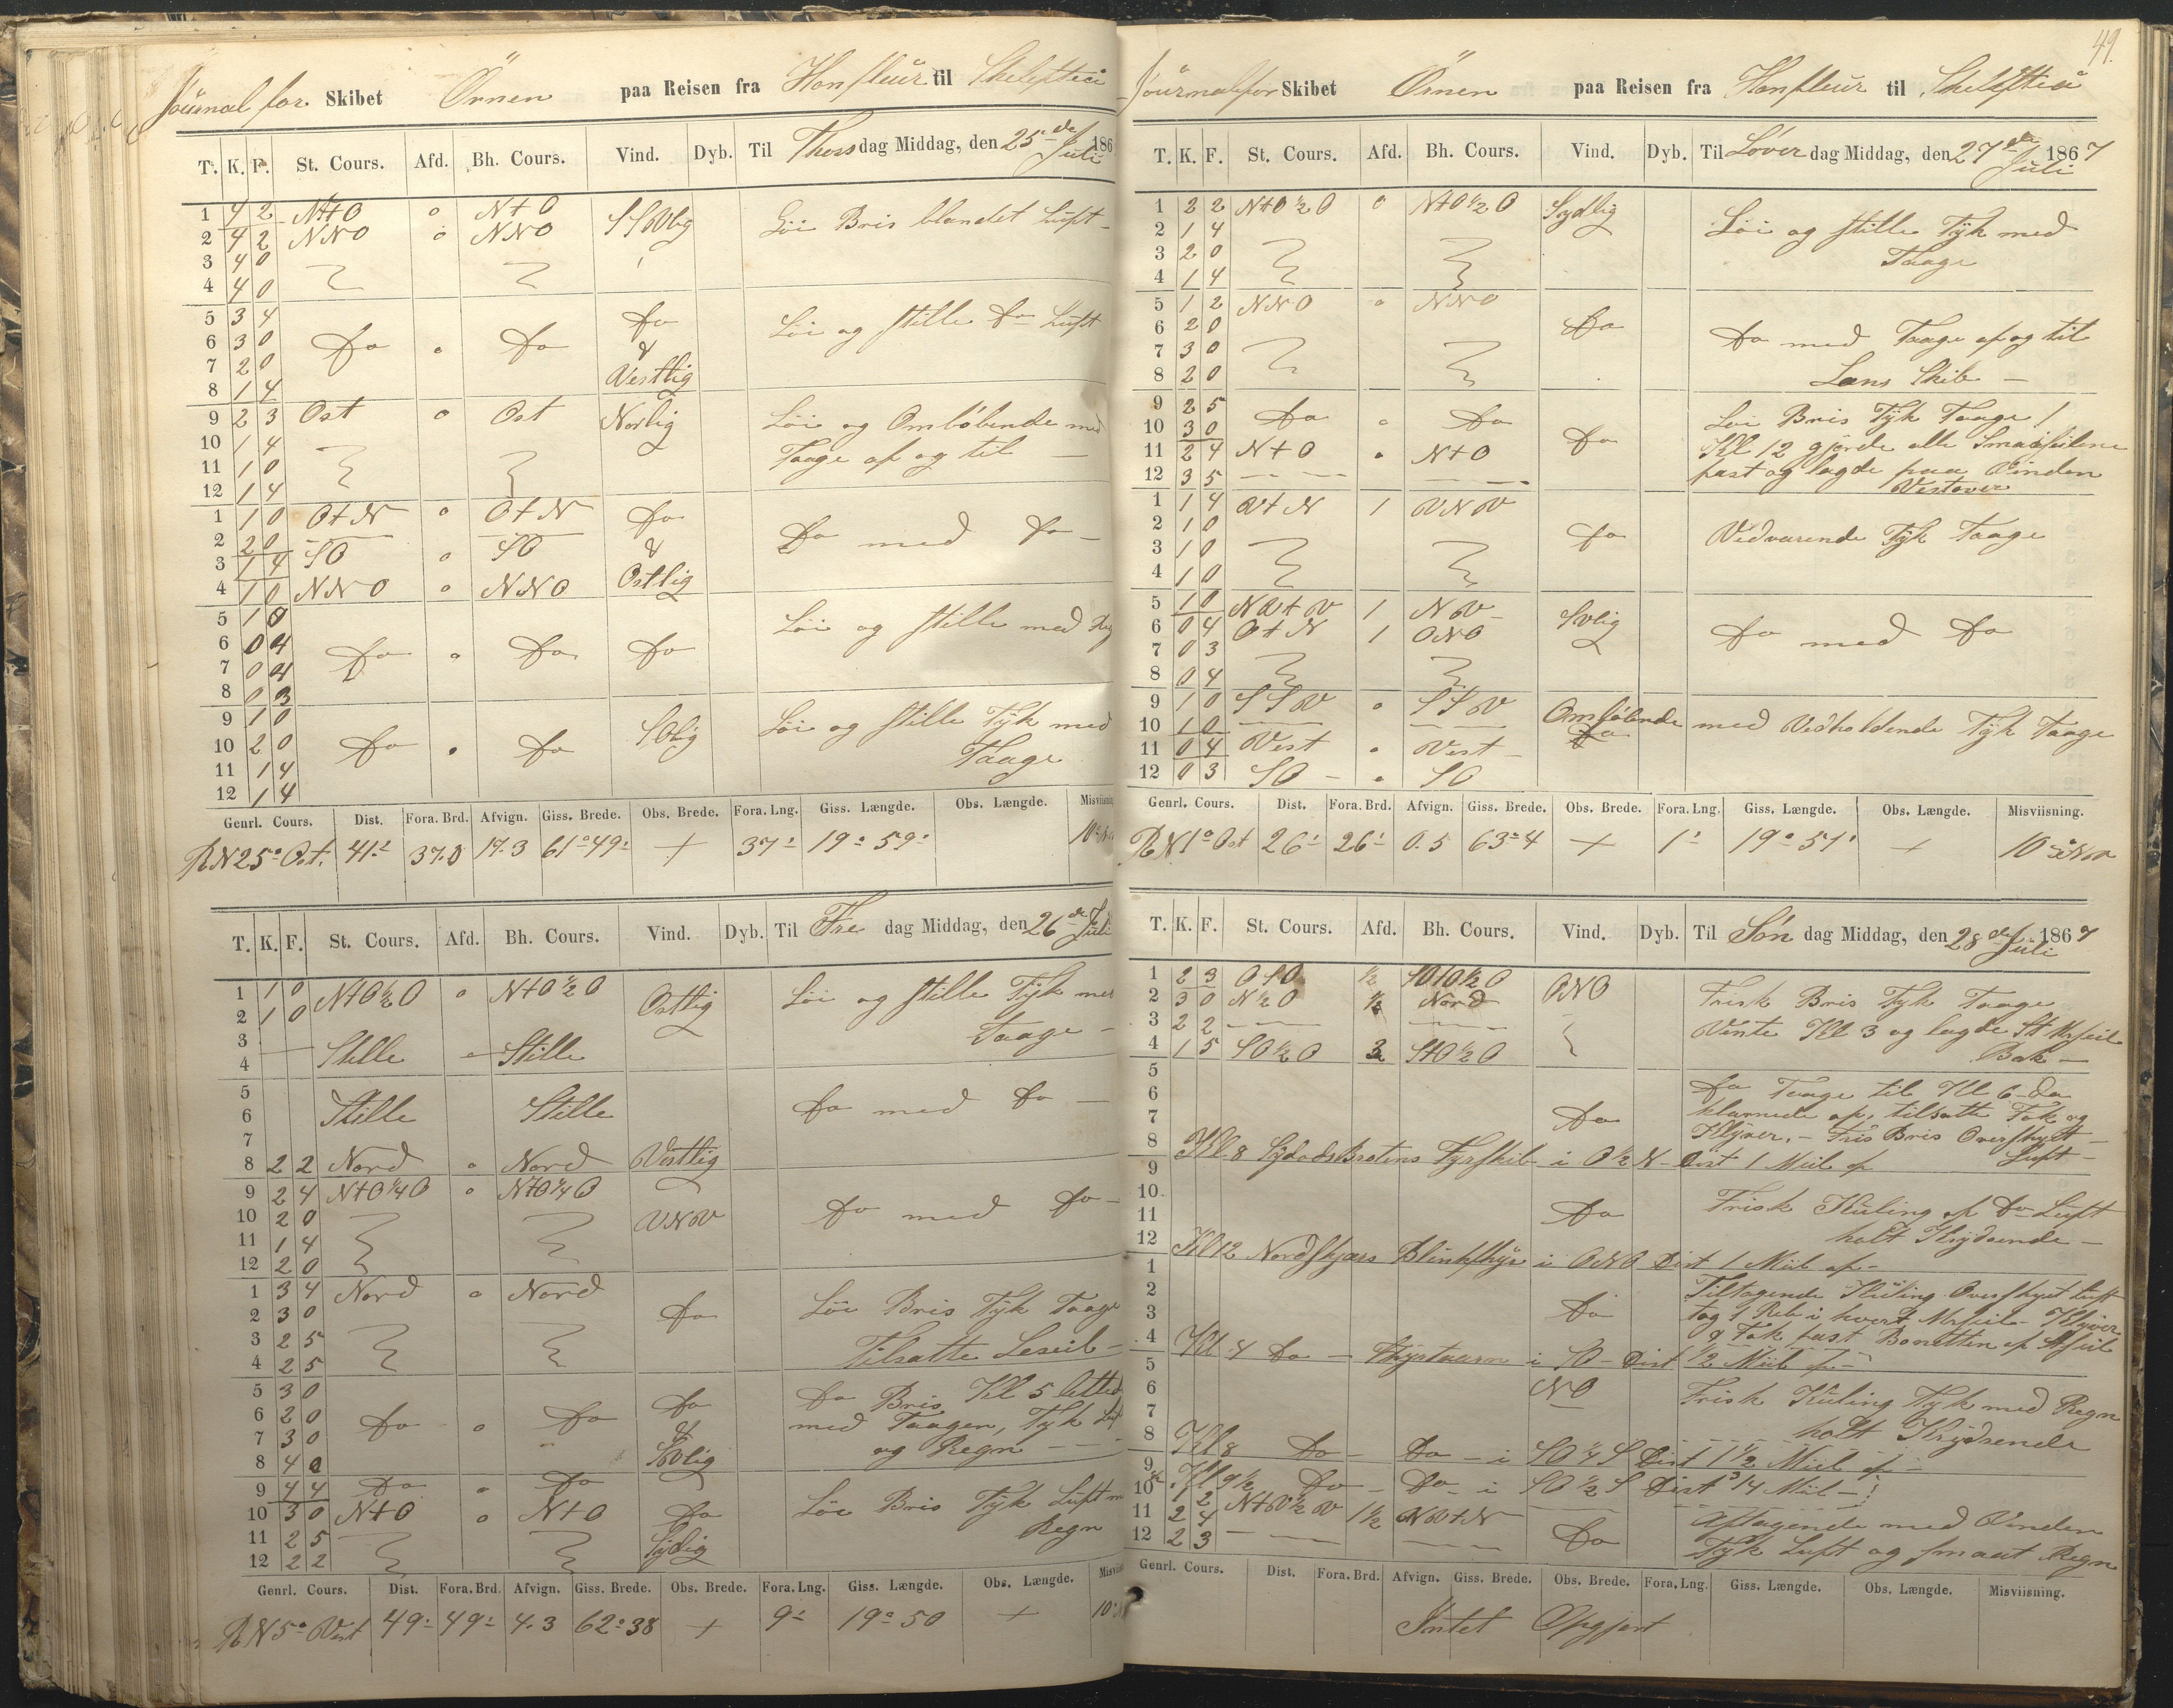 Journal for Skibet Örnen paa Reisen fra Honfleur til Skelefteå
T. K. F. St. Cours. Afd. Bh. Cours. Vind. Dyb. Til Thorsdag Middag, den 25de Juli 186
1 4 2 N t O o N t O SSVlig Löi Bris blandet Luft
2 4 2 NNO o NNO
3 4 0
4 4 0
5 3 4 Do o Do Do Löi og stille Do Luft
6 3 0 &
7 2 0 Vestlig
8 1 4
9 2 3 Ost o Ost Norlig Löi og Omlöbende med
10 1 4 Taage af og til
11 1 0
12 1 4
1 1 0 O t N o O t N Do Do med Do
2 2 0 &
3 1 4 SO o SO Ostlig
4 1 0 NNO o NNO
5 1 0 Löi og stille med
6 0 4 Do o Do Do
7 0 4
8 0 3
9 1 0 Löi og stille Tÿk med
10 2 0 Do o Do SOlig Taage
11 1 4
12 1 4
Genrl. Cours. Dist. Fora. Brd. Afvign. Giss. Brede. Obs. Brede. Fora. Lng. Giss. Længde. Obs. Længde. Misviisning
R N 25° Ost. 41' 37.0 17.3 61°49' + 37' 19°59'
T. K. F. St. Cours. Afd. Bh. Cours. Vind. Dyb. Til Fredag Middag, den 26de Juli
1 1 0 N t O ½ O o N t O ½ O Ostlig Löi og stille Tÿk med
2 1 0 Taage
3 Stille Stille
4
5
6 Stille Stille Do med Do
7
8 2 2 Nord o Nord Vestlig
9 2 4 N t O ¼ O o N t O ¼ O Do med Do
10 2 0 VNV
11 1 4
12 2 0
1 3 4 Nord o Nord Do Löi Bris Tÿk Taage
2 3 0
3 2 5 Tilsatte Leseil
4 2 5
5 3 0 Do Do Bris Kl 5 letted
6 2 0 Do o Do & med Taagen, Tyk Luft
7 3 0 SVlig og Regn
8 4 0
9 4 4 Do o Do Löi Bris Tÿk Luft m
10 3 0 N t O o N t O Do Regn
11 2 5 Sÿdlig
12 2 2
Genrl. Cours. Dist. Fora. Brd. Afvign. Giss. Brede. Obs. Brede. Fora. Lng. Giss. Længde. Obs. Længde.
R N 5° Vest 49' 49' 4.3 62°38 + 9' 19°50 +
49.
Journal for Skibet Örnen paa Reisen fra Honfleur til Skelefteå
T. K. F. St. Cours. Afd. Bh. Cours. Vind. Dyb. Til Löverdag Middag, den 27de Juli 1867
1 2 2 N t O ½ O o N t O ½ O Sydlig Löi og stille Tÿk med
2 1 4 Taage
3 2 0
4 1 4
5 1 2 NNO o NNO
6 2 0 Do Do med Taage af og til
7 3 0
8 2 0 Læns Skib
9 2 5 Do o Do Löi Bris Tÿk Taage
10 3 0 Do Kl 12 gjorde alle Smaaseilene
11 2 4 N t O o N t O fast og lagde paa Vinden
12 3 5 Vestover
1 1 4 V t N 1 VNV
2 1 0 Do Vedvarende Tÿk Taage
3 1 0
4 1 0
5 1 0 NV t V 1 NV SVlig
6 0 4 O t N 1 ONO Do med Do
7 0 3
8 0 4
9 1 0 SSV o SSV Omlöbende med Vedholdende Tÿk Taage
10 1 0 Do
11 0 4 Vest o Vest
12 0 3 SO o SO
Genrl. Cours. Dist. Fora. Brd. Afvign. Giss. Brede. Obs. Brede. Fora. Lng. Giss. Længde. Obs. Længde. Misviisning.
R N 1° Ost 26' 26' 0.5 63°4 + 1' 19°51' + 10°
T. K. F. St. Cours. Afd. Bh. Cours. Vind. Dyb. Til Söndag Middag, den 28de Juli 1867
1 2 3 ½ ONO Frisk Bris Tÿk Taage
2 3 0 N ½ O ½ Nord Vente Kl 3 og lagde St Mrseil
3 2 2 Bak
4 1 5 SO ½ O
5 Do Taage til Kl 6 Da
6 klarnede af, tilsatte Fok og
7 Do Klÿver. Fris Bris Overskÿet
8 Kl 8 Fyrskib i O ½ N Dist 1 Miil af Luft
9
10 Frisk Kuling af Do Luft
11 Do holt Krÿdsende
12 Kl 12 Nordskjærs Blinkfÿr i ONO Dist 1 Miil af
1 Tiltagende Küling Overskÿet Luft
2 tog 1 Reb i hvert Mrseil Klÿver
3 Do & Fok fast Bonetten af
4 Kl 4 Do Fÿrtaarn i SO Dist ½ Miil af
5
6 NO Frisk Küling Tÿk med Regn
7 holt Krÿdsende
8 Kl 8 Do Do i SO ¼ S Dist 1 ½ Miil af
9 Kl 9 ½ Do Do i SO ½ S Dist ¾ Miil
10 1 2 N t V ½ V 1½ NV t N Aftagende med Vinden
11 2 4 Do Tÿk Luft og smaat Regn
12 2 3
Genrl. Cours. Dist. Fora. Brd. Afvign. Giss. Brede. Obs. Brede. Fora. Lng. Giss. Længde. Obs. Længde. Misviisning.
Intet Opgjort